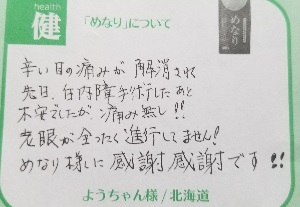 health
健
「めなり」について
めなり
辛い目の痛みが解消されて
先日、白内障手術したあと
不安でしたが、痛み無し!!
老眼が全ったく進行してません!
めなり様に感謝感謝です!!
ようちゃん様/北海道